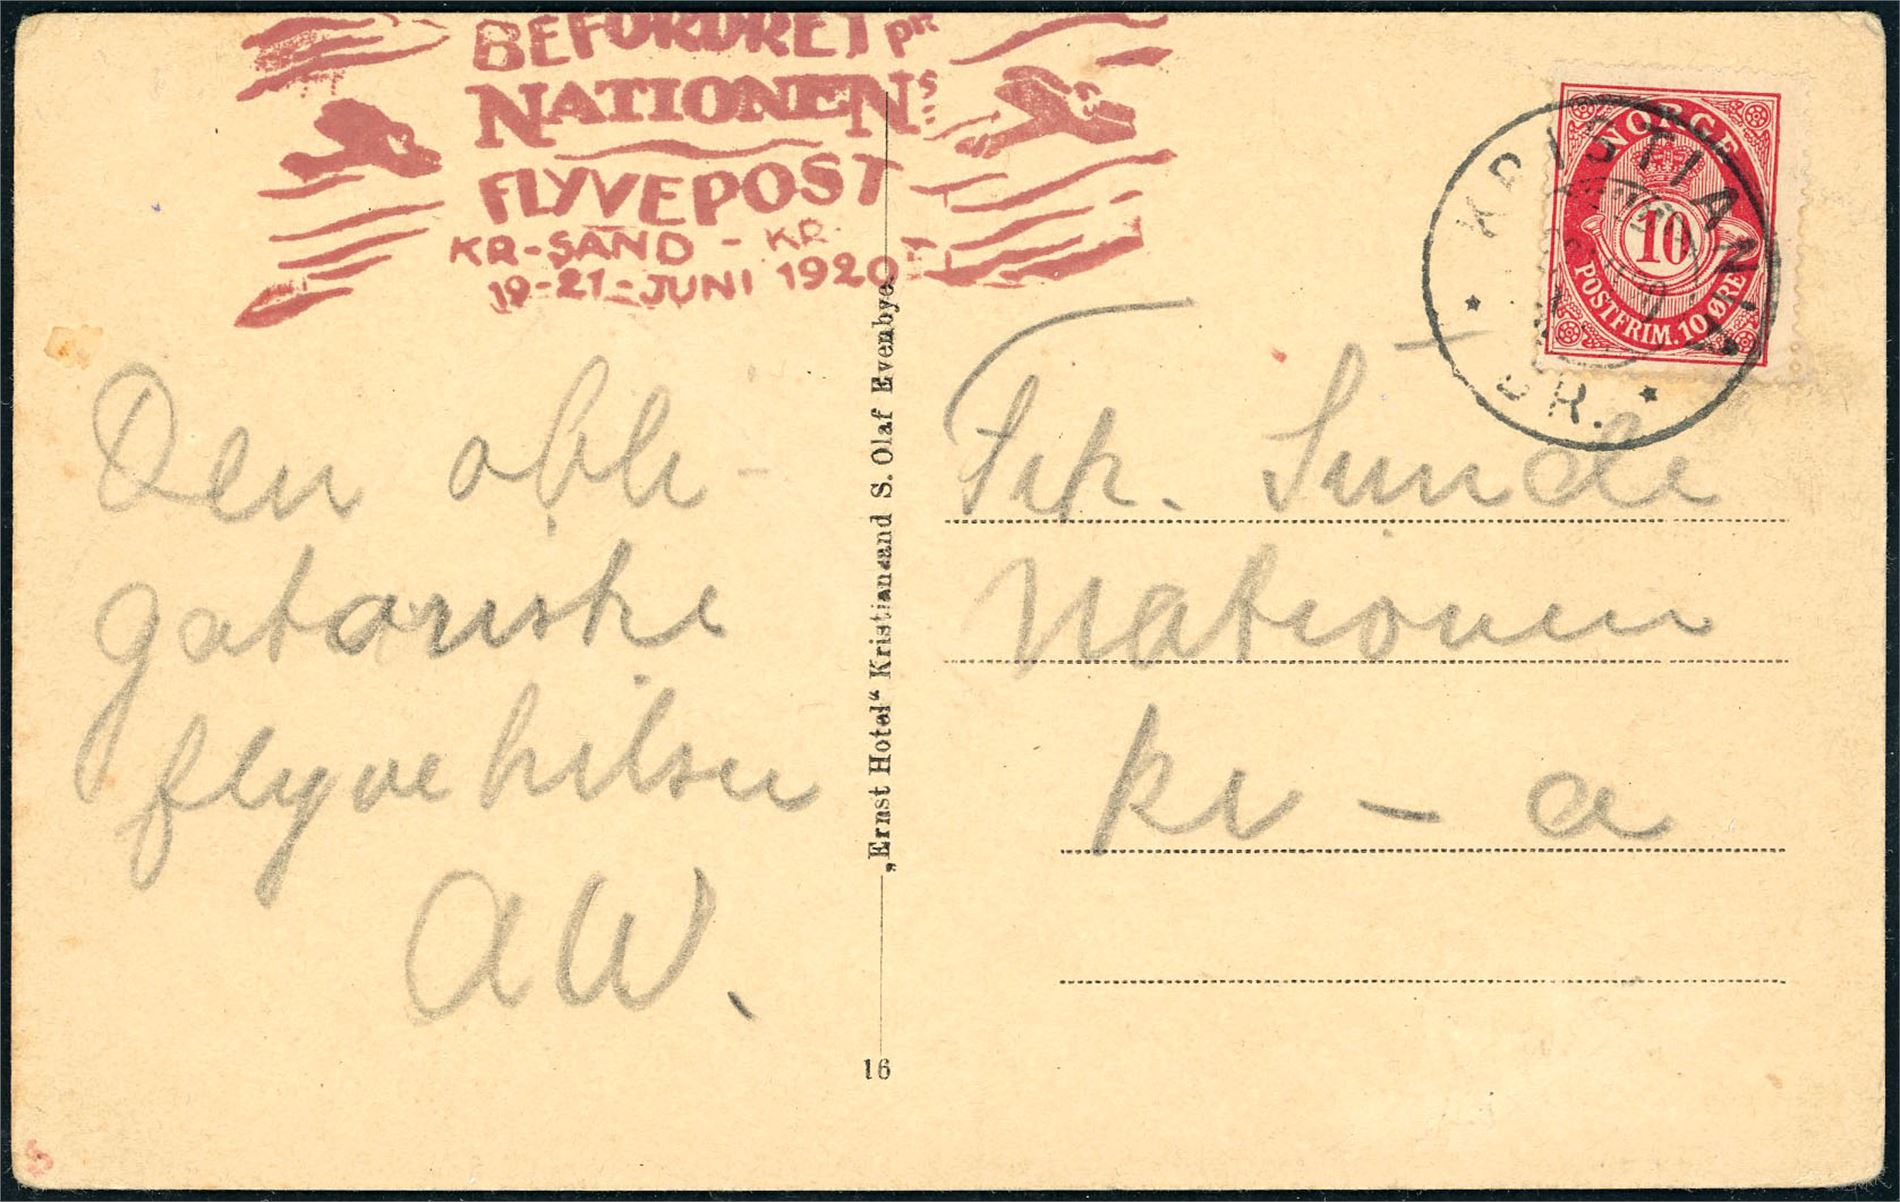 BEFORDRET PR
NATIONENS
FLYVEPOST
KR-SAND - KR.
19-21-JUNI 1920
NORGE
10
POSTFRIM. 10 ØRE
KRISTIANIA
BR.
Den obli-
gatoriske
flyvehilsen
AW.
„Ernst Hotel“ Kristiansand S. Olaf Evenbye.
16
Frk. Sunde
Nationen
Kr - a